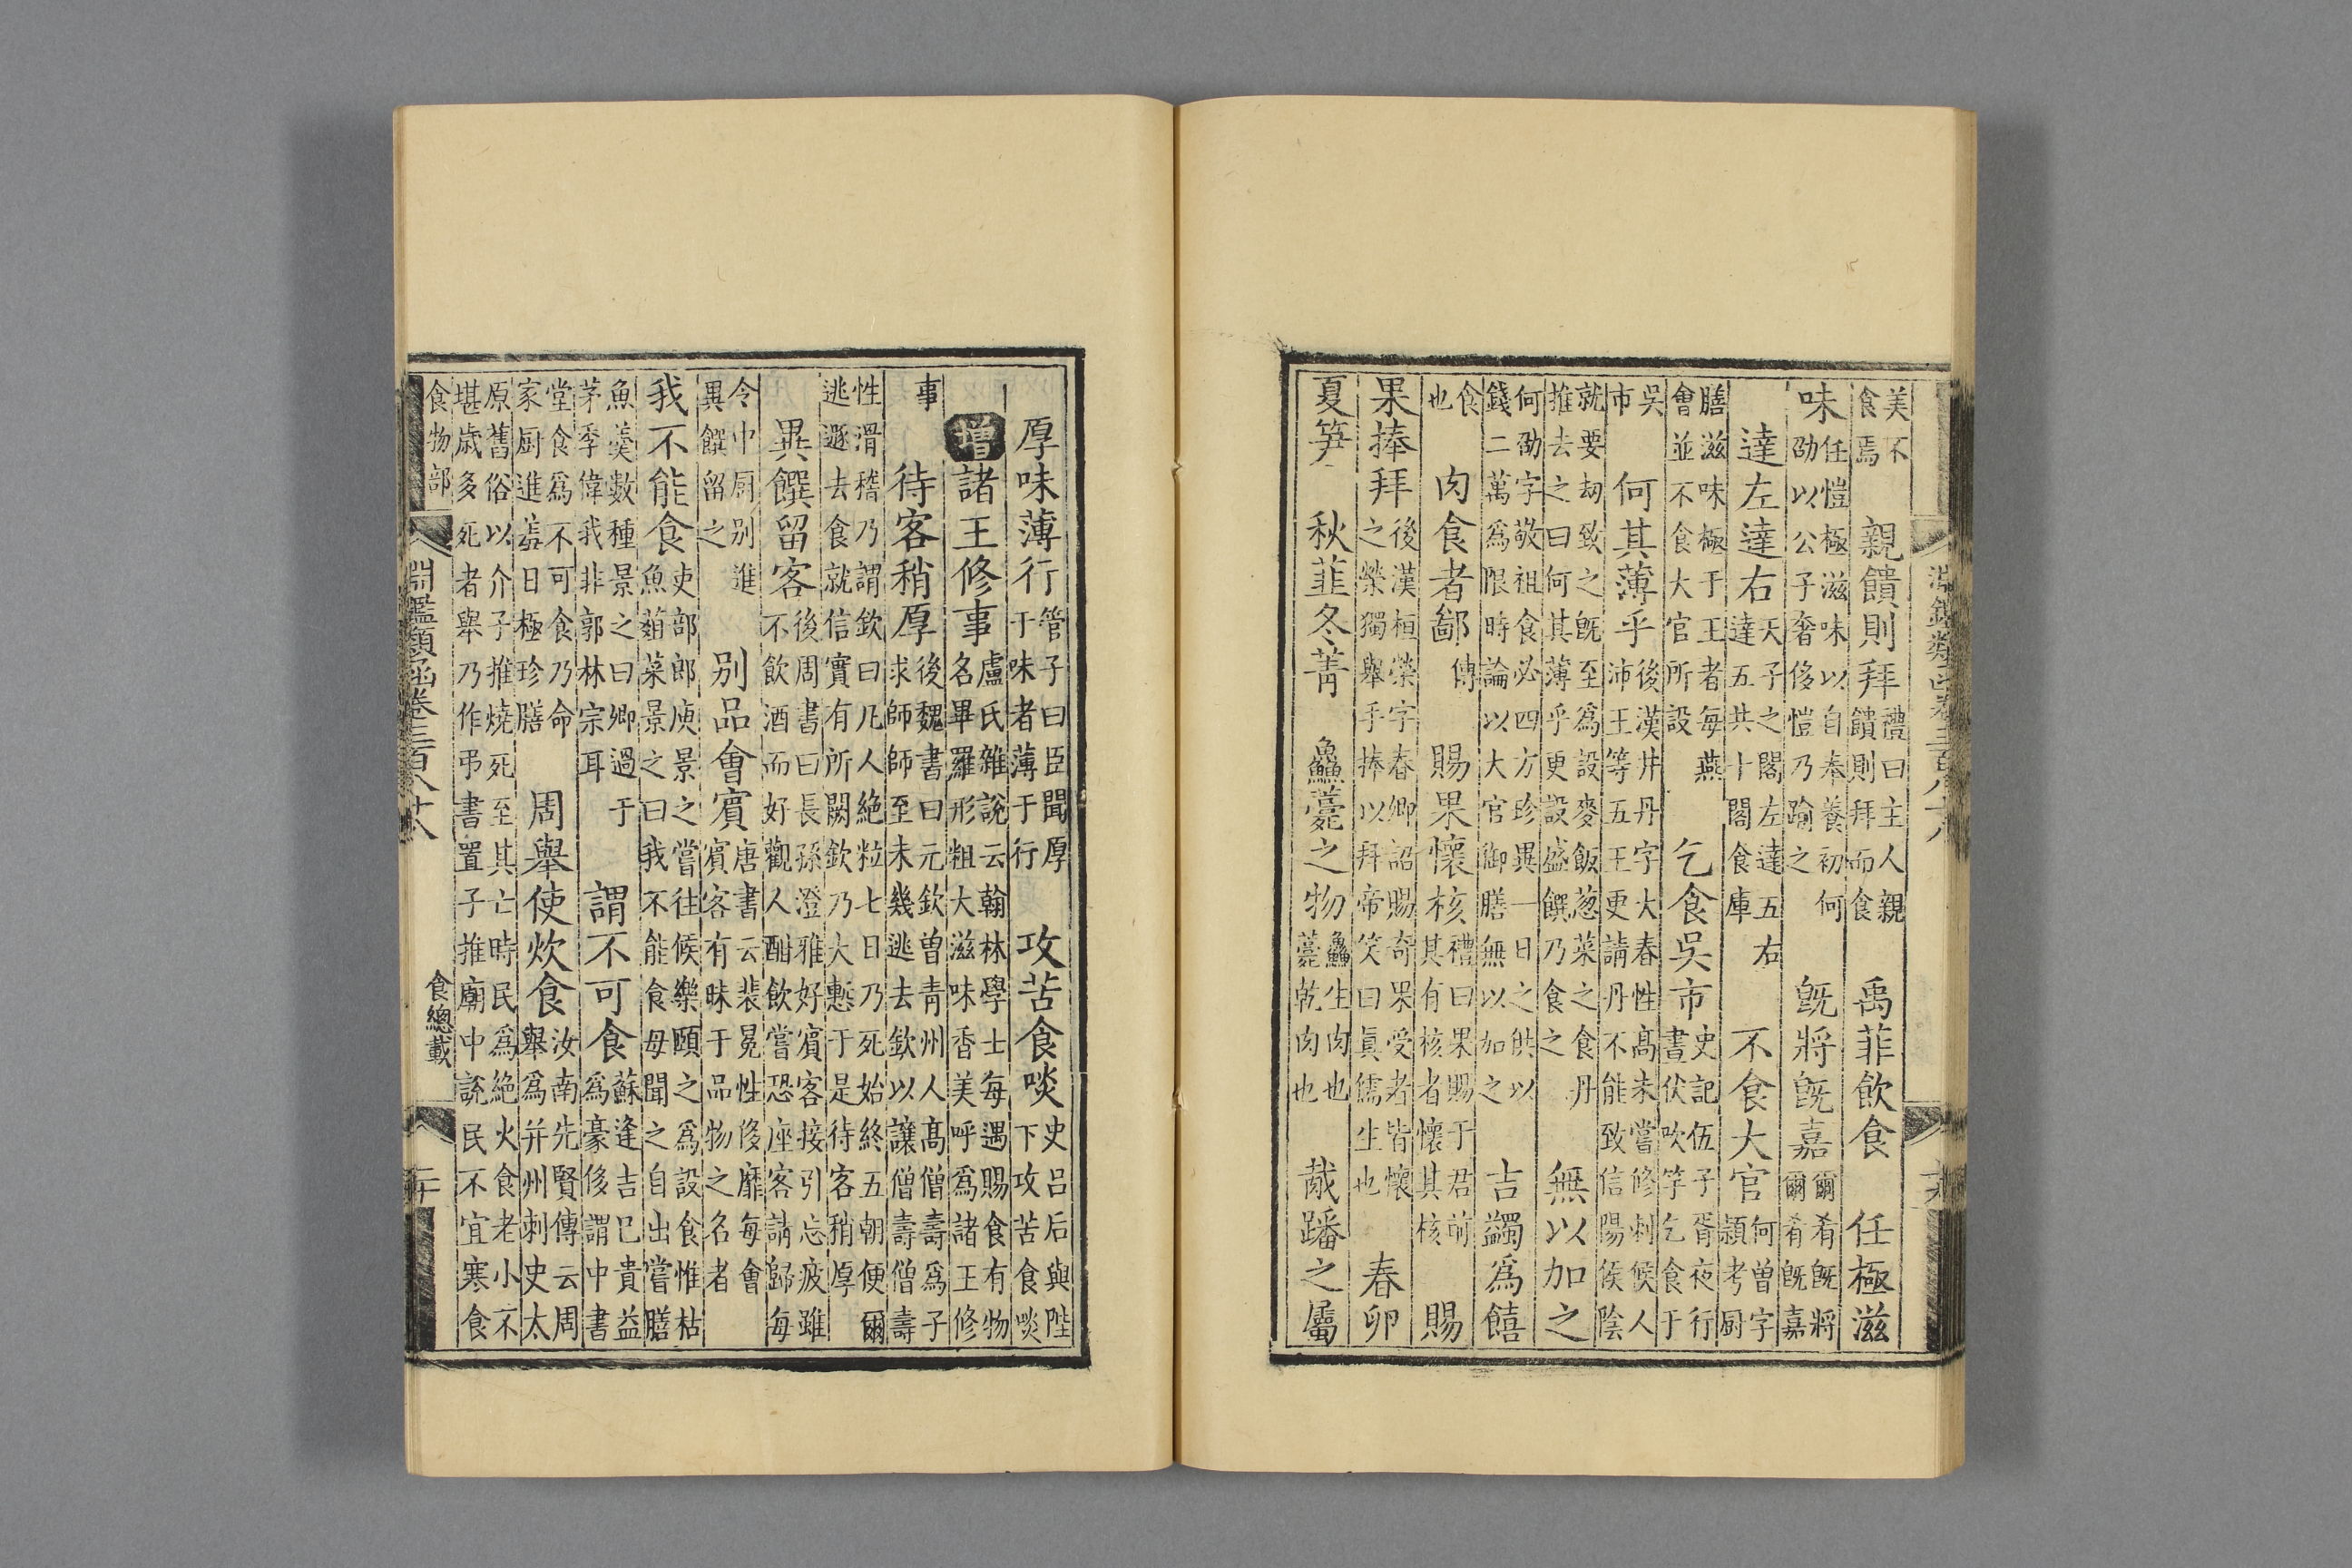 淵鑑類函卷三百八十八 十九
美不食焉 親饋則拜禮曰主人親饋則拜而食 禹菲飲食 任極滋
味任愷極滋味以自奉養初何劭以公子奢侈愷乃踰之 既將既嘉爾肴既將爾肴既嘉
達左達右天子之閣左達五右達五共十閣食庫 不食大官何曾字穎考厨
膳滋味極于王者每燕會並不食大官所設 乞食吳市史記伍子胥夜行書伏吹竽乞食于
吳市 何其薄乎後漢井丹字大春性高未嘗修刺候人沛王等五王更請丹不能致信陽侯陰
就要劫致之既至爲設麥飯葱菜之食丹推去之曰何其薄乎更設盛饌乃食之 無以加之
何劭字敬祖食必四方珍異一日之供以錢二萬爲限時論以大官御膳無以加之 吉蠲爲饎
食也 肉食者鄙傳 賜果懷核禮曰果賜于君前其有核者懷其核 賜
果捧拜後漢桓榮字春卿詔賜奇果受者皆懷之榮獨舉手捧以拜帝笑曰眞儒生也 春卯
夏笋 秋韮冬菁 鱻薧之物鱻生肉也薧乾肉也 胾蹯之屬
厚味薄行管子曰臣聞厚于味者薄于行 攻苦食啖史呂后與陛下攻苦食啖
增 諸王修事盧氏雜說云翰林學士每遇賜食有物名畢羅形粗大滋味香美呼爲諸王修
事 待客稍厚後魏書曰元欽曾青州人高僧壽爲子求師師至未幾逃去欽以讓僧壽僧壽
性滑稽乃謂欽曰凡人絶粒七日乃死始終五朝便爾逃遯去食就信實有所闕欽乃大慙于是待客稍厚
異饌留客後周書曰長孫澄雅好賓客接引忘疲雖不飲酒而好觀人酣飲嘗恐座客請歸每
令中厨别進異饌留之 别品會賓唐書云裴冕性侈靡每會賓客有昧于品物之名者
我不能食吏部郎庾景之嘗往候樂頤之爲設食惟枯魚葅菜景之曰我不能食母聞之自出嘗膳
魚羮數種景之曰卿過于茅季偉我非郭林宗耳 謂不可食蘇逢吉已貴益爲豪侈謂中書
堂食爲不可食乃命家厨進羞日極珍膳 周舉使炊食汝南先賢傳云周舉爲并州刺史太
原舊俗以介子推燒死至其亡時民爲絶火食老小不堪歲多死者舉乃作弔書置子推廟中說民不宜寒食
食物部 淵鑑類函卷三百八十八 食總載 二十